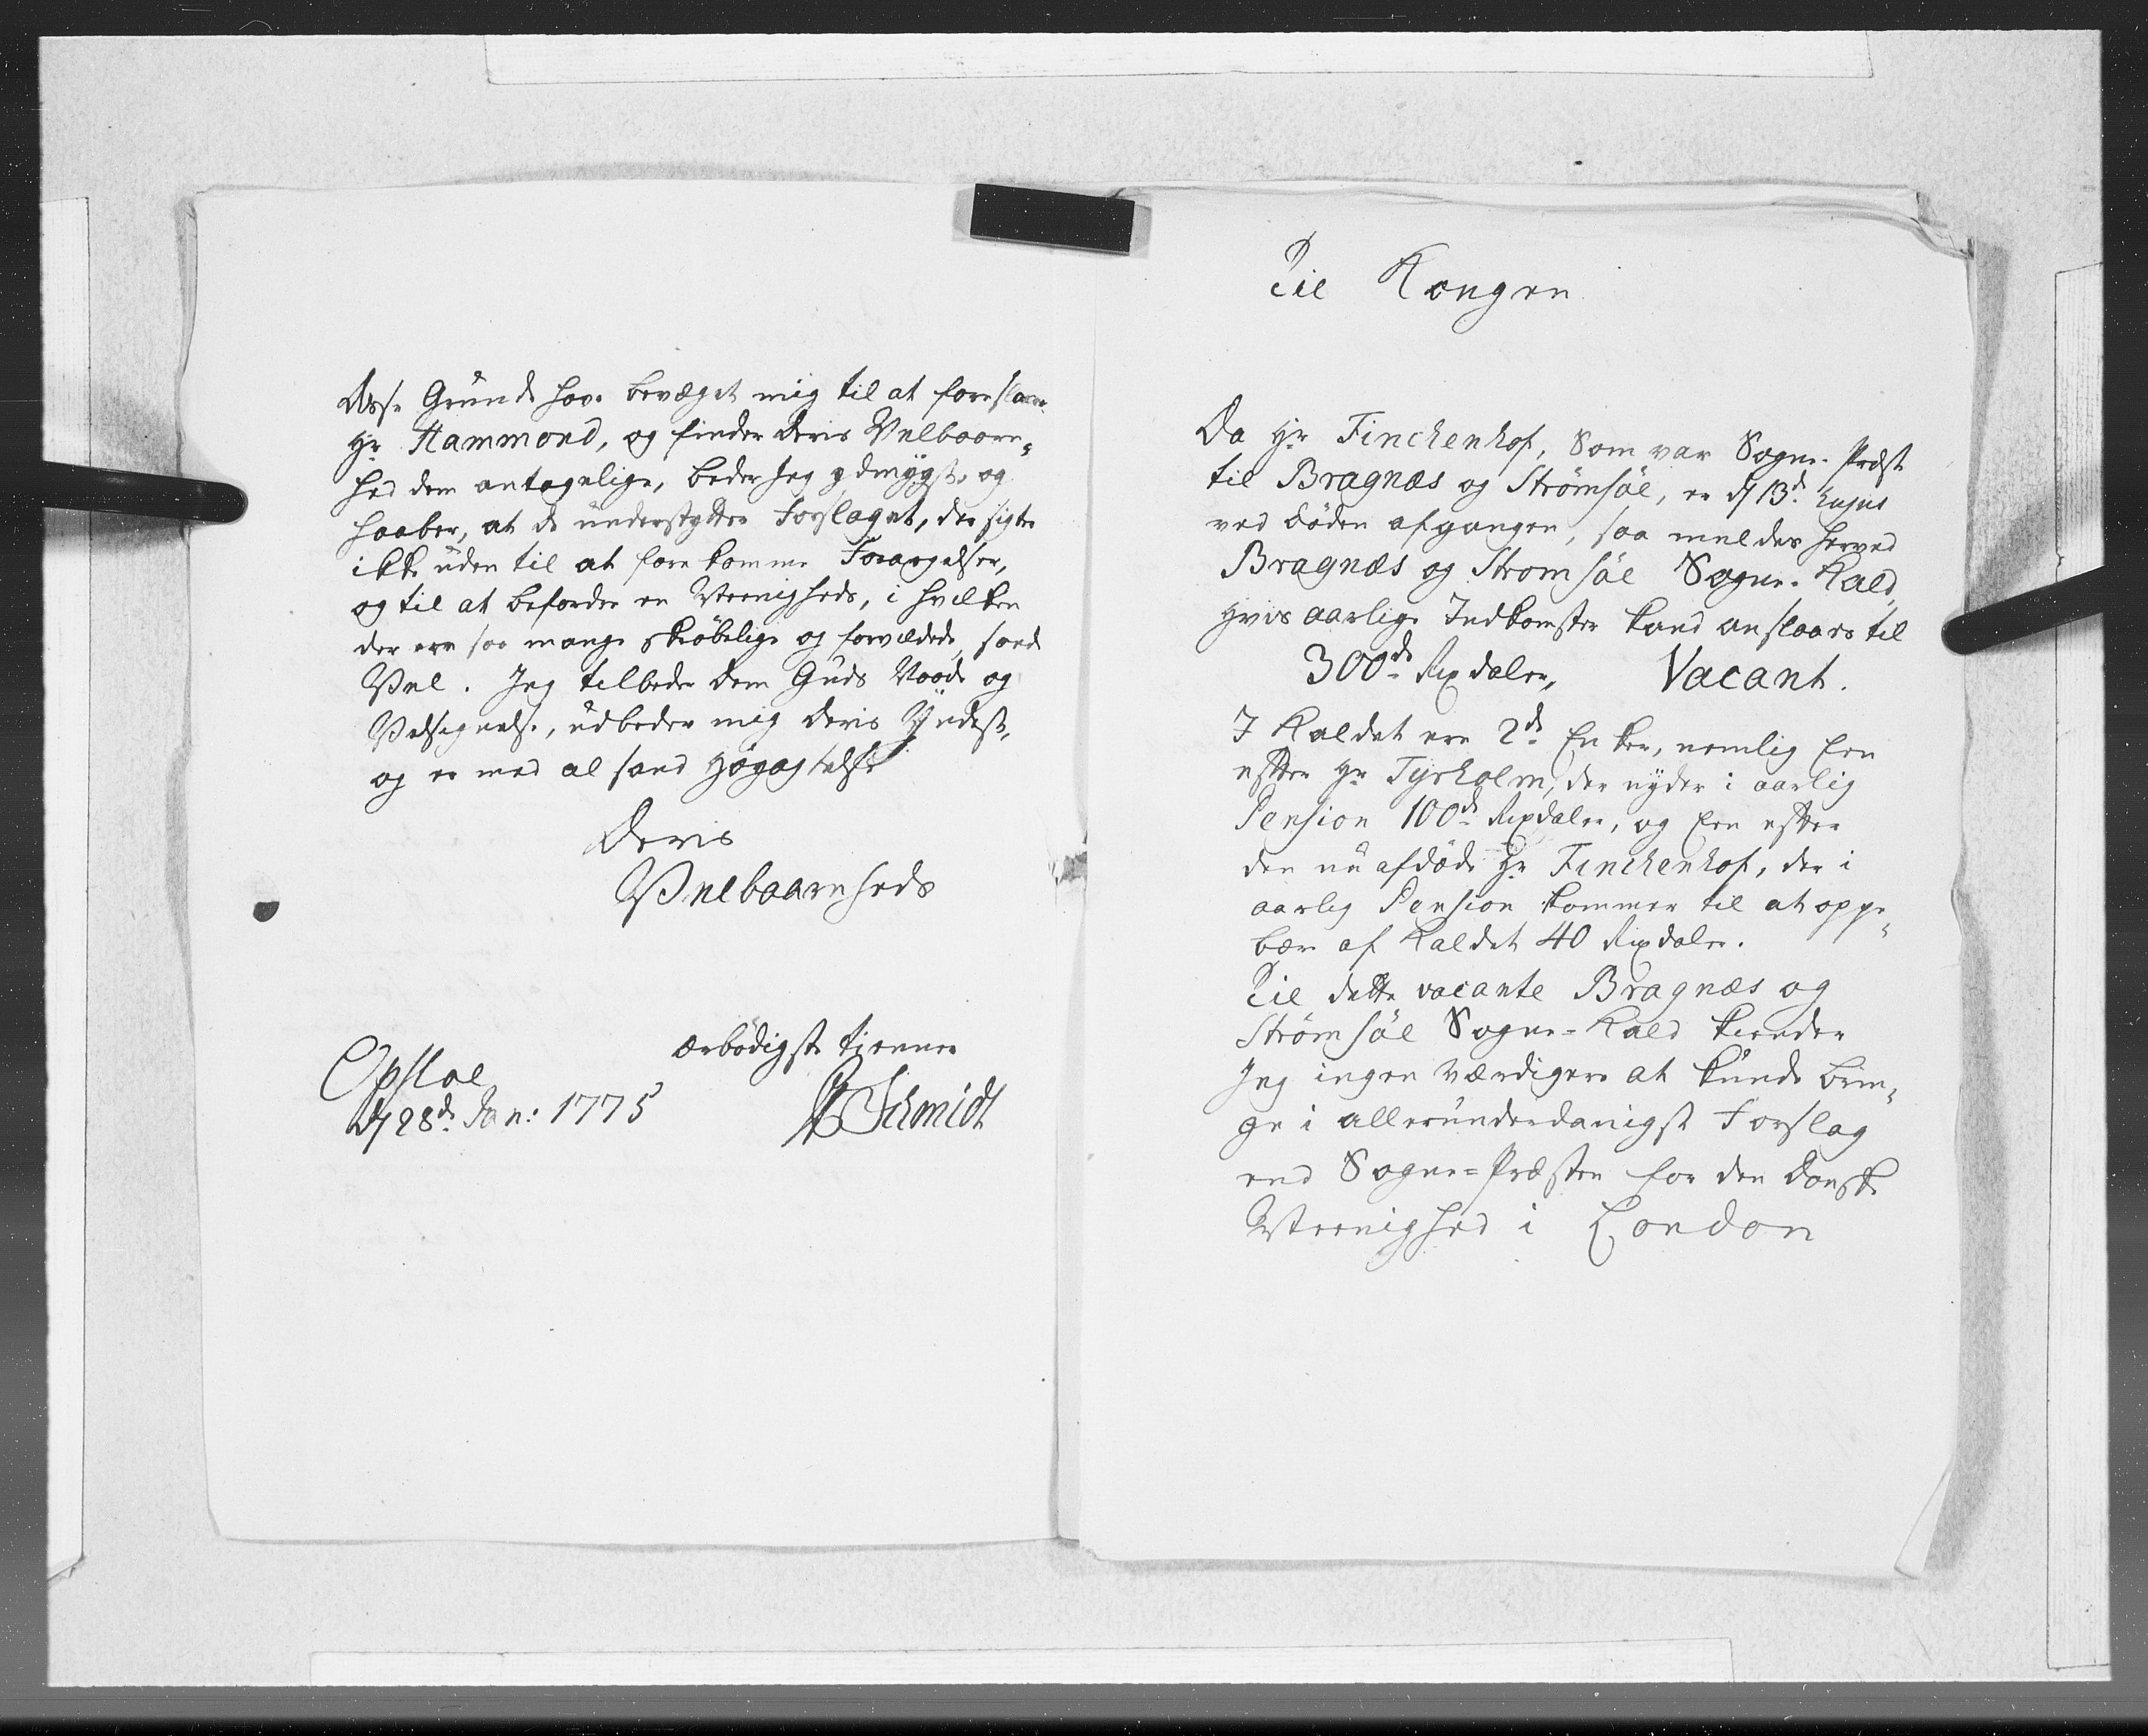 disse Grunde have bevæget mig til at foreslaae
Hr Hammond, og finder deris Velbaarn„
hed dem antagelige, beder Jeg ydmygst, og
haaber, at de understytter Forslaget, der sigter
ikke uden til at forekomme Forargelser,
og til at befordre en Meenigheds, i hvilken
der ere saa mange skrøbelige og forældede, sande
Vel. Jeg tilbeder dem Guds Naade og
Velsignelse, udbeder mig deris Yndest,
og er med al sand Høgagtelse
Deris
Velbaarnheds
ærbödigste tienner
Opsloe
d 28d Jan: 1775
Schmidt
Til Kongen
Da Hr Finckenhof, Som var Sogne-Præst
til Bragnæs og Strömsöe, er d 13d hujus
ved döden afgangen, saa meldes herved
Bragnæs og Stromsöe Sogne-Kald,
hvis aarlige Indkomster kand anslaaes til
300de Rixdaler, Vacant.
I Kaldet ere 2de Enker, nemlig Een
efter Hr Tyrholm, der nyder i aarlig
Pension 100de Rixdaler, og Een efter
den nu afdöde Hr Finckenhof, der i
aarlig Pension kommer til at oppe„
bære af Kaldet 40 Rixdaler.
Til dette vacante Bragnæs og
Strömsöe Sogne-Kald kiender
Jeg ingen værdigere at kunde brin„
ge i allerunderdanigst Forslag
end Sogne-Præsten for den danske
Meenighed i London